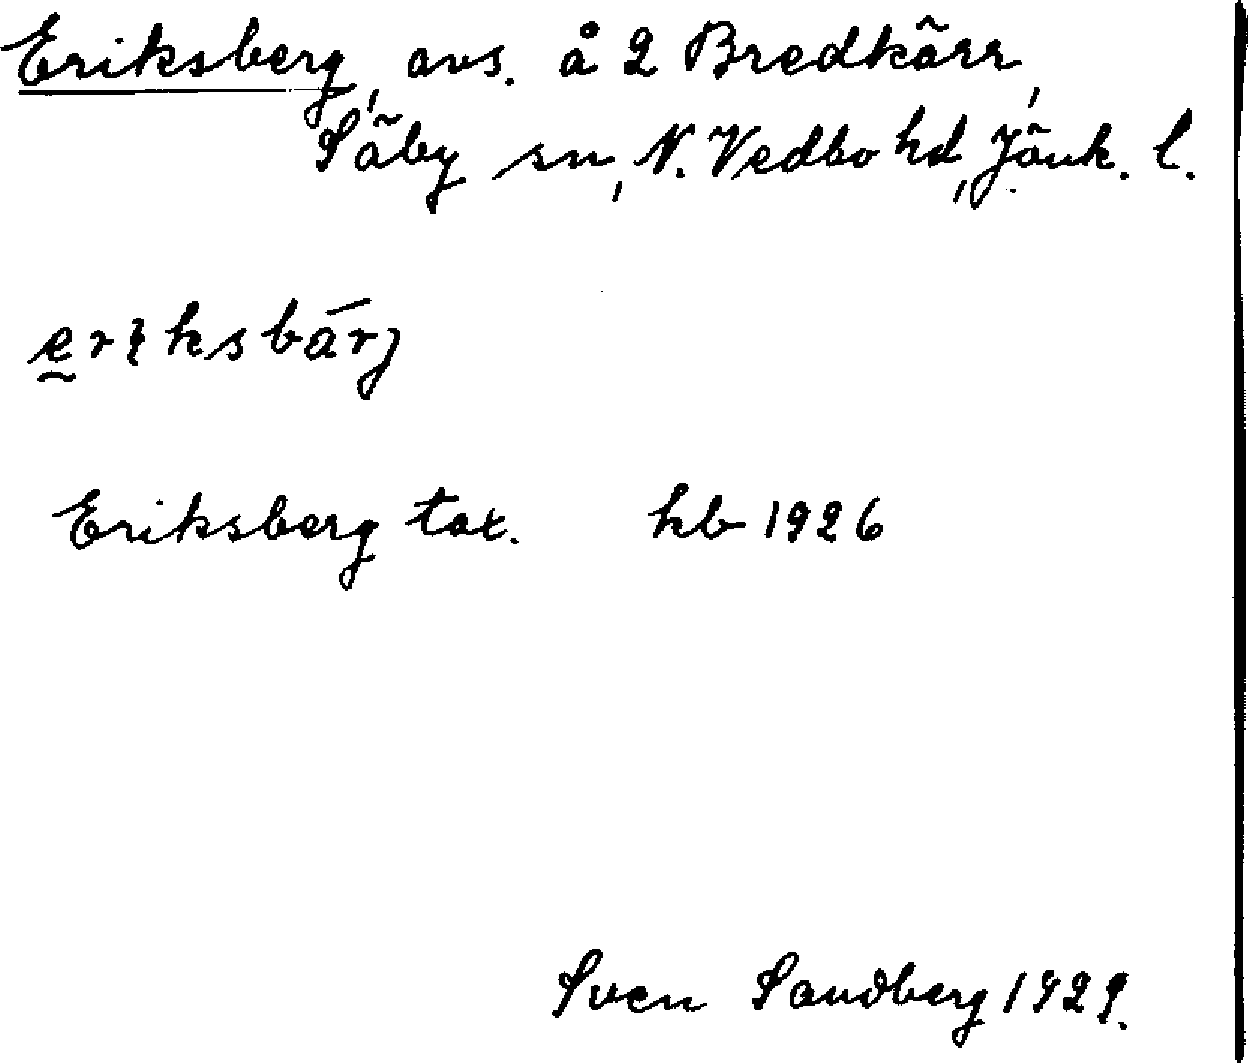 Eriksberg, avs. å 2 Bredkärr,
Säby sn, N. Vedbo hd, Jönk. l.
erıksbárj
Eriksberg tax. hb 1926
Sven Sandberg 1929.